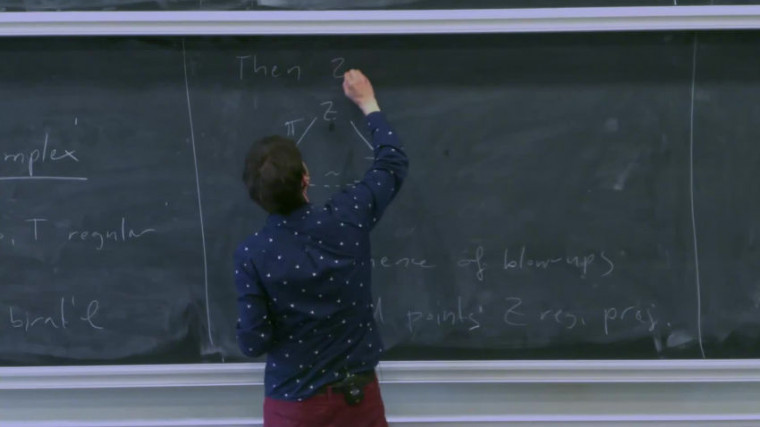 mplex
T regular
birat'l
Then Z
Z
π
~
of blow-ups
points Z reg. proj.